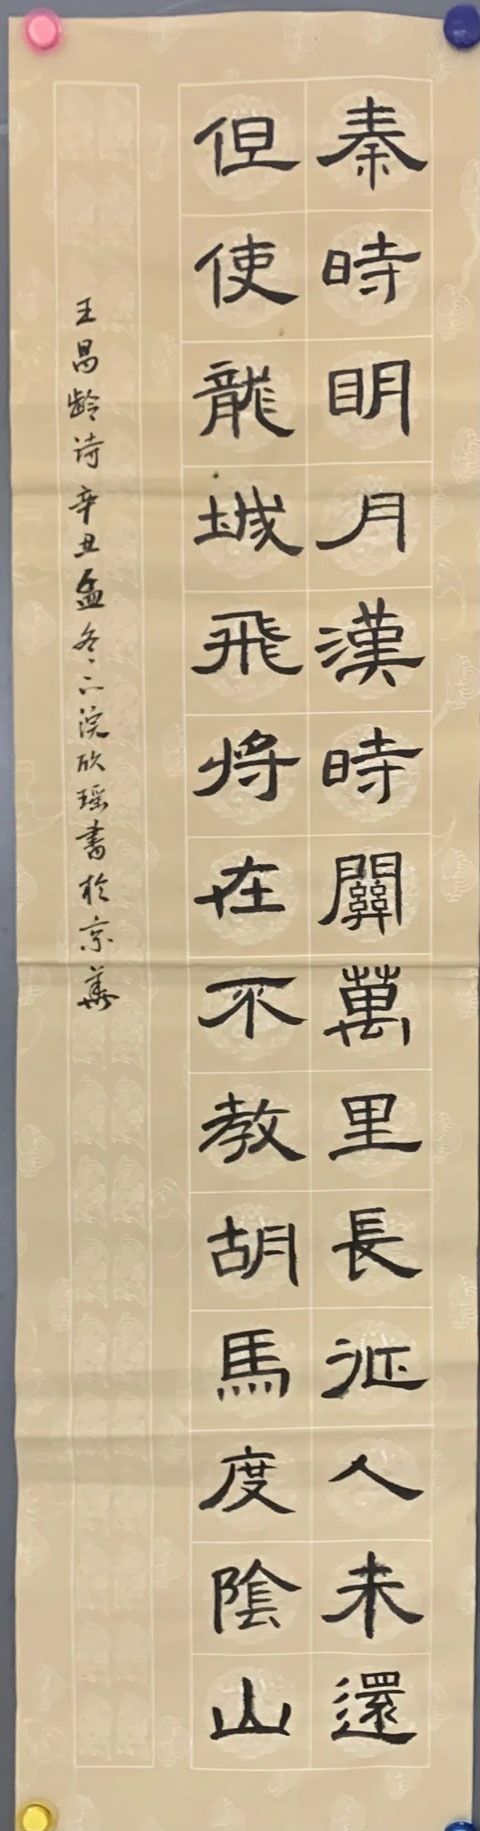 秦時明月漢時關萬里長征人未還
但使龍城飛將在不教胡馬度陰山
王昌龄诗辛丑孟冬欣瑶書於京華